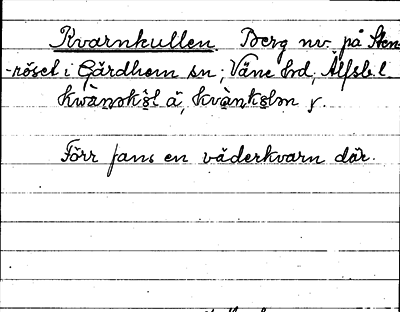 Kvarnkullen. Berg nv. på Sten-
-röset i Gärdhem sn; Väne hd, Älfsb. l.
kwànnkə̀l ä, kvànkələn y.
Förr fans en väderkvarn där.